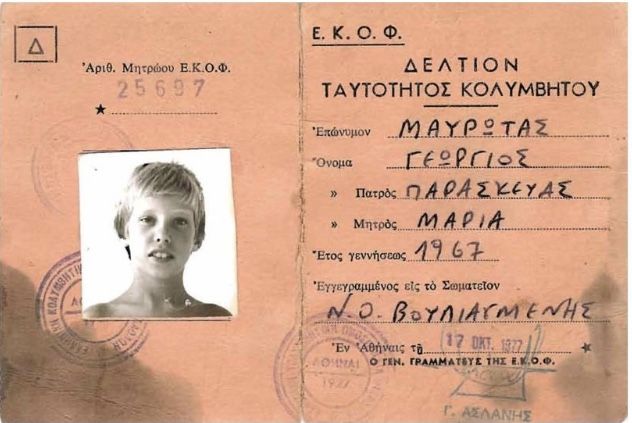 Δ
Ἀριθ. Μητρώου Ε.Κ.Ο.Φ.
25697
★
Ε. Κ. Ο. Φ.
ΔΕΛΤΙΟΝ
ΤΑΥΤΟΤΗΤΟΣ ΚΟΛΥΜΒΗΤΟΥ
Ἐπώνυμον ΜΑΥΡΩΤΑΣ
Ὄνομα ΓΕΩΡΓΙΟΣ
» Πατρὸς ΠΑΡΑΣΚΕΥΑΣ
» Μητρὸς ΜΑΡΙΑ
Ἔτος γεννήσεως 1967
Ἐγγεγραμμένος εἰς τὸ Σωματεῖον
Ν.Ο. ΒΟΥΛΙΑΓΜΕΝΗΣ
Ἐν Ἀθήναις τῇ 17 ΟΚΤ. 1977 ★
Ο ΓΕΝ. ΓΡΑΜΜΑΤΕΥΣ ΤΗΣ Ε.Κ.Ο.Φ.
ΑΘΗΝΑΙ
1927
Γ. ΑΣΛΑΝΗΣ